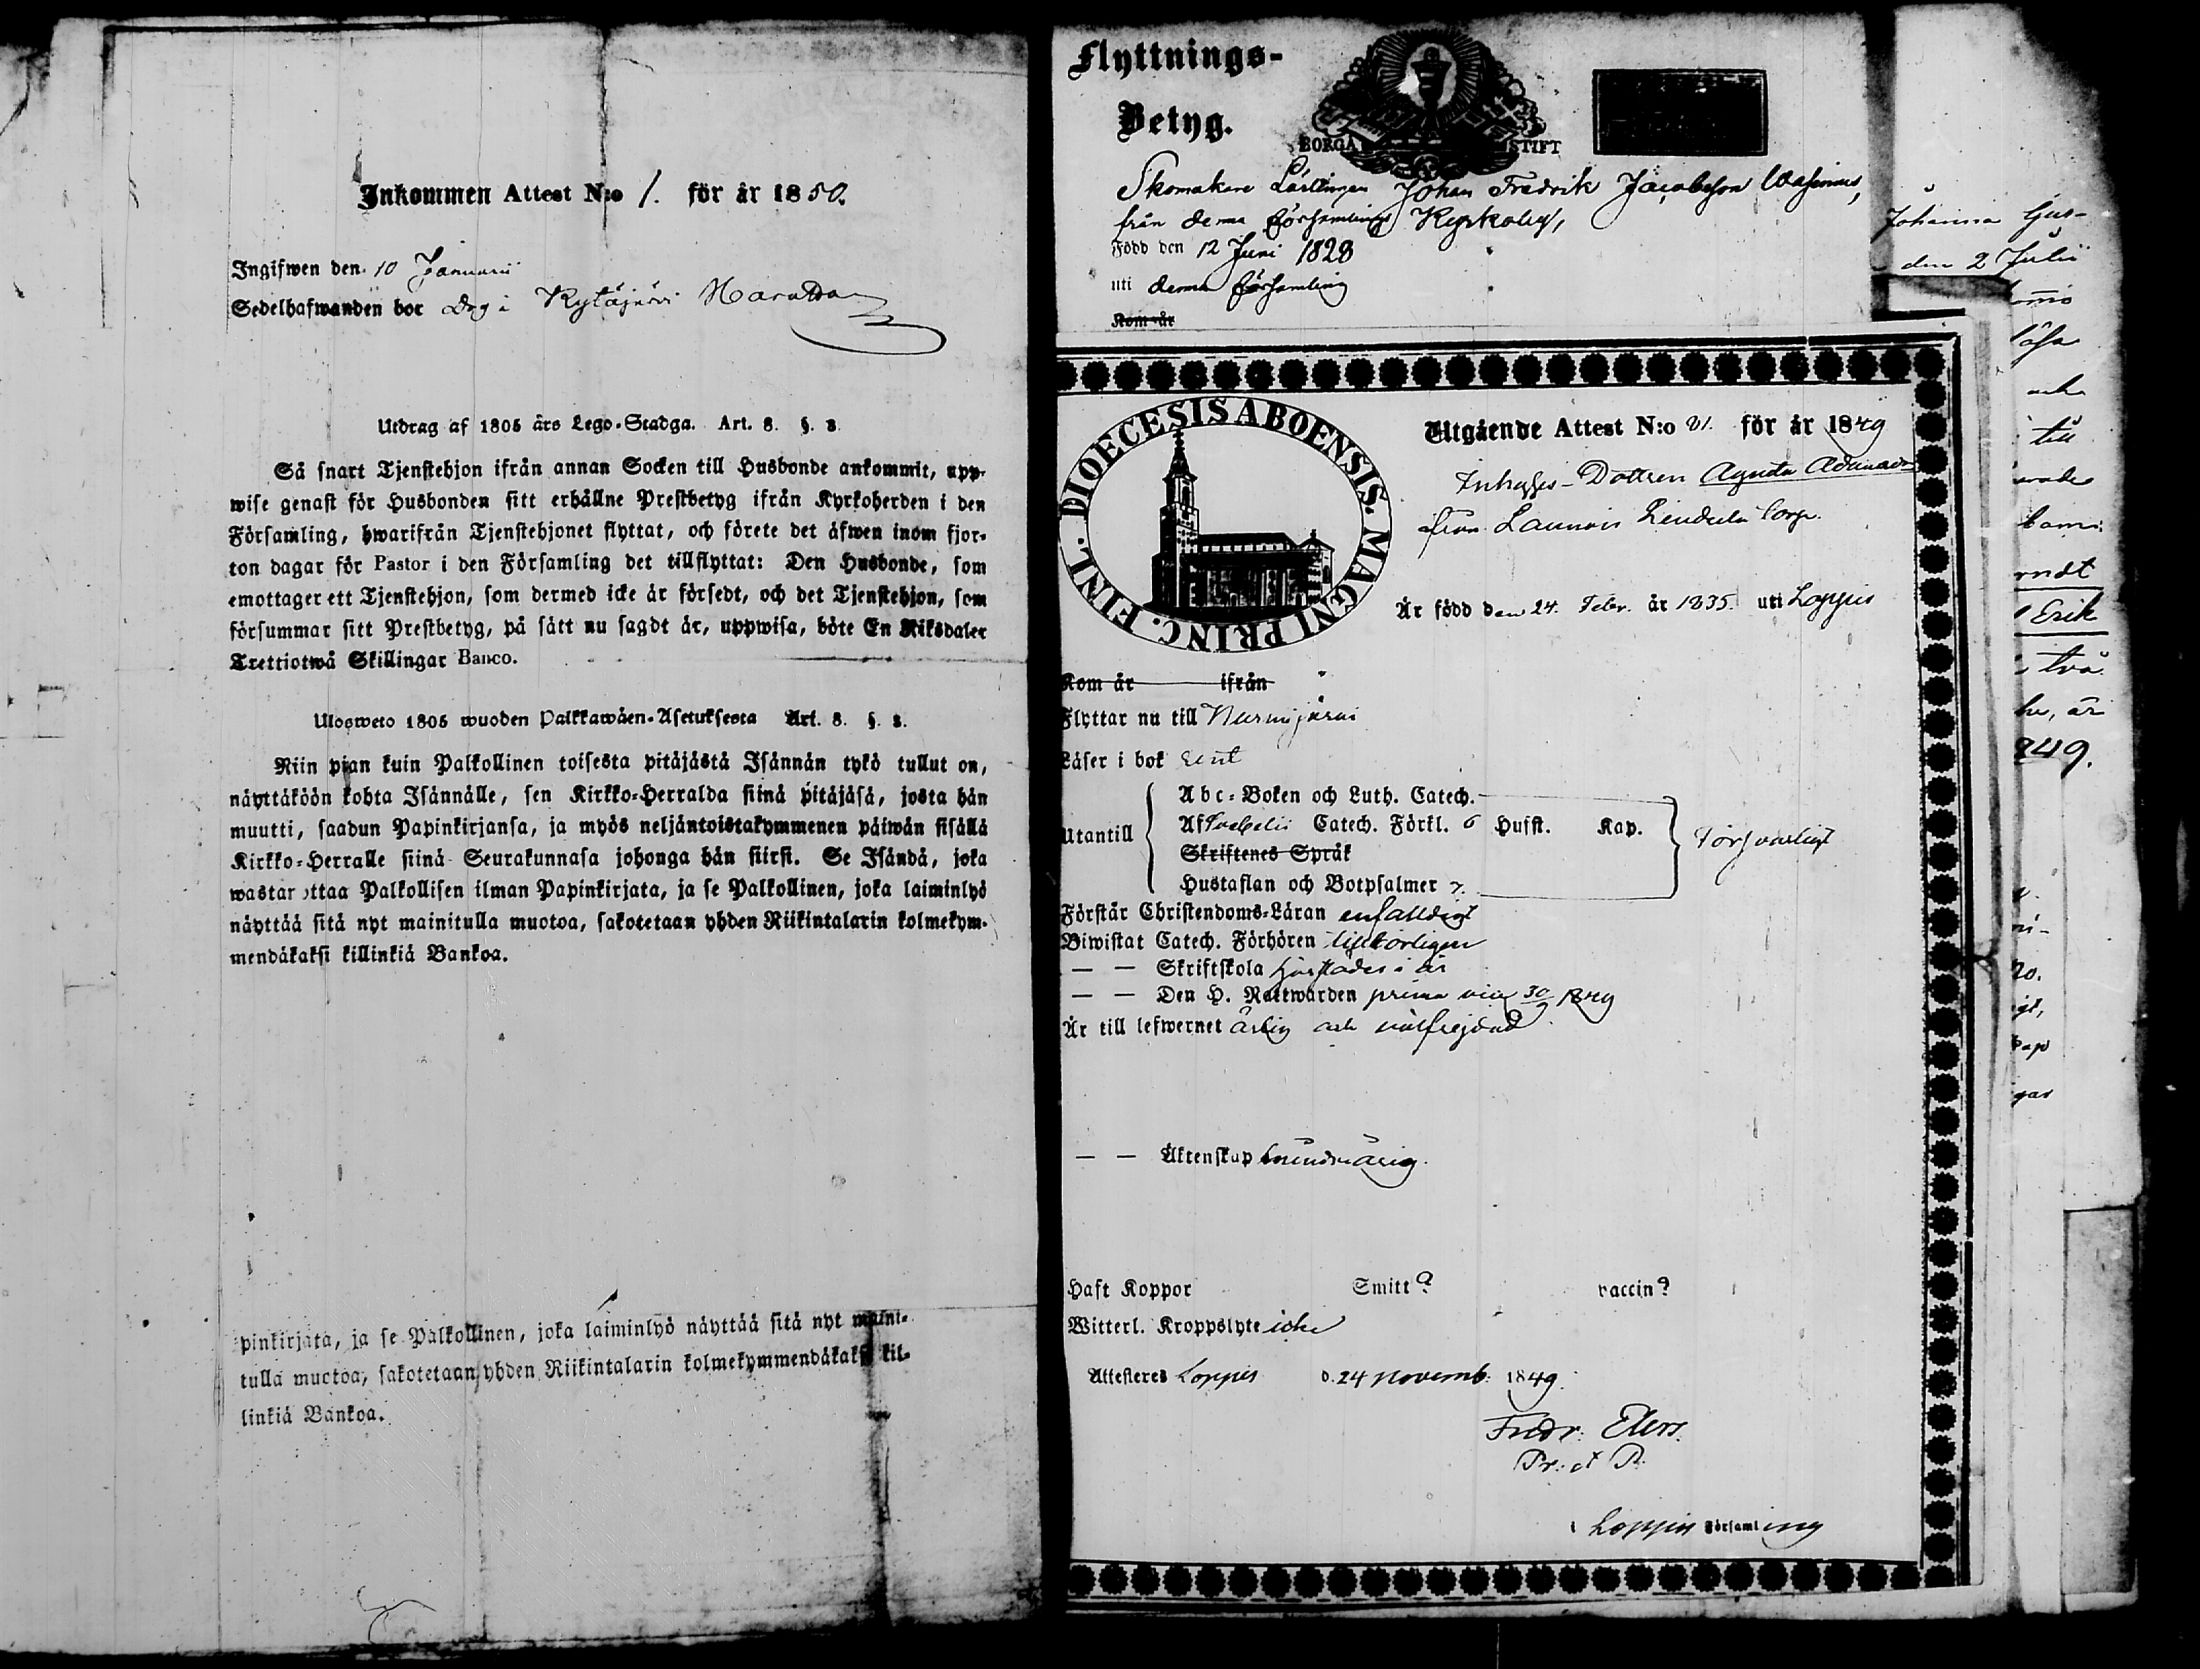 Inkommen Attest N:o 1. för år 1850.
Ingifwen den 10 Januarii
Sedelhafwanden bor Drg i Kytäjärvi
Utdrag af 1805 års Lego-Stadga. Art. 8. §. 8.
Så snart Tjenstehjon ifrån annan Socken till Husbonde ankommit, upp-
wise genast för Husbonden sitt erhållne Prestbetyg ifrån Kyrkoherden i den
Församling, hwarifrån Tjenstehjonet flyttat, och förete det äfwen inom fjor-
ton dagar för Pastor i den Församling det tillflyttat: Den Husbonde, som
emottager ett Tjenstehjon, som dermed icke är försedt, och det Tjenstehjon, som
försummar sitt Prestbetyg, på sätt nu sagdt är, uppwisa, böte En Riksdaler
Trettiotwå Skillingar Banco.
Ulosweto 1805 wuoden Palkkawäen-Asetuksesta Art. 8. §. 8.
Niin pian kuin Palkollinen toisesta pitäjästä Isännän tykö tullut on,
näyttäköön kohta Isännälle, sen Kirkko-Herralda siinä pitäjäsä, josta hän
muutti, saadun Papinkirjansa, ja myös neljäntoistakymmenen päiwän sisällä
Kirkko-Herralle siinä Seurakunnasa johonga hän siirsi. Se Isändä, joka
wastar ottaa Palkollisen ilman Papinkirjata, ja se Palkollinen, joka laiminlyö
näyttää sitä nyt mainitulla muotoa, sakotetaan yhden Riikintalarin kolmekym-
mendäkaksi killinkiä Bankoa.
pinkirjata, ja se Palkollinen, joka laiminlyö näyttää sitä nyt maini-
tulla muotoa, sakotetaan yhden Riikintalarin kolmekymmendäkaksi kil-
linkiä Bankoa.
Flyttnings-
Betyg.
BORGÅ STIFT
Skomakare Lärlingen Johan Fredrik Jacobsson
från denna församlings Kyrkoby,
Född den 12 Juni 1828
uti denna församling
Kom år
DIOECESIS ABOENSIS. MAGNI PRINC. FINL.
Utgående Attest N:o 81. för år 1849
Inhyses-Dottren Agata
från
Är född den 24. Febr. år 1835. uti Loppis
Kom år ifrån
Flyttar nu till Nurmijärvi
Läser i bok rent
Abc-Boken och Luth. Catech.
Utantill Af Catech. Förkl. 6 Hufst. Kap. försvarligt
Skriftenes Språk
Hustaflan och Botpsalmer 7.
Förstår Christendoms-Läran enfalldigt
Biwistat Catech. Förhören
— — Skriftskola i år
— — Den H. Nattwarden prima vice 30/9 1849
Är till lefwernet ärlig och välfrejdad
— — Äktenskap
Haft Koppor Smitt? vaccin?
Witterl. Kroppslyte icke
Attesteres Loppis d. 24 Novemb: 1849.
Fredr: Elers.
Pr: et P.
i Loppis Församling
Johanna Gus-
den 2 Julii
och
till
Erik
två
är
849.